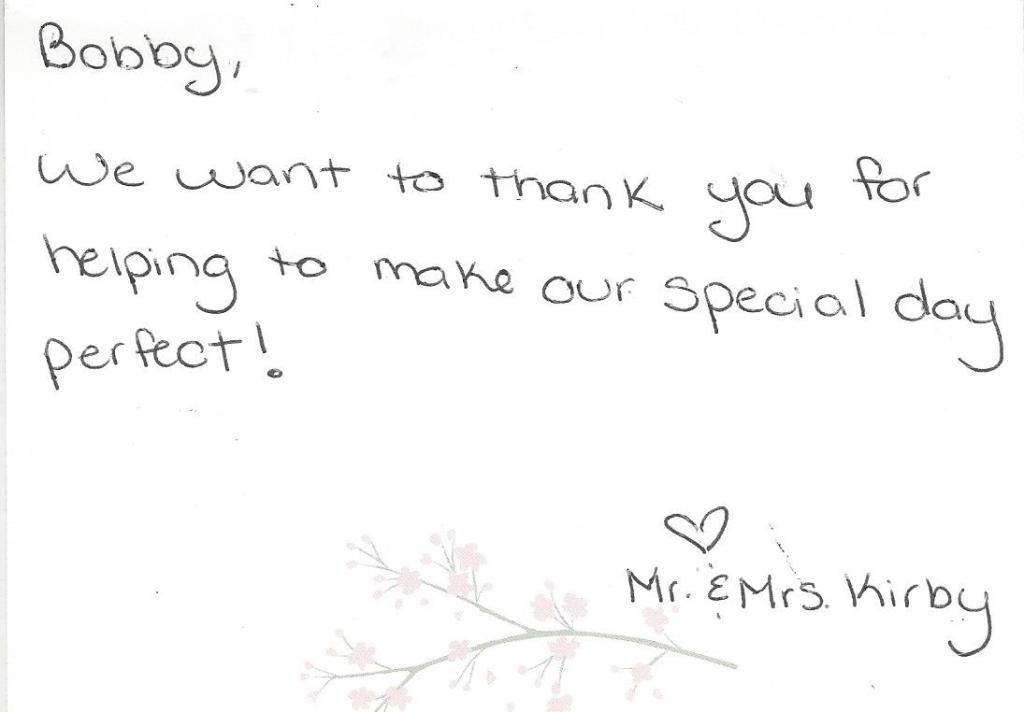 Bobby,
We want to thank you for
helping to make our special day
perfect!
♡
Mr. & Mrs. Kirby